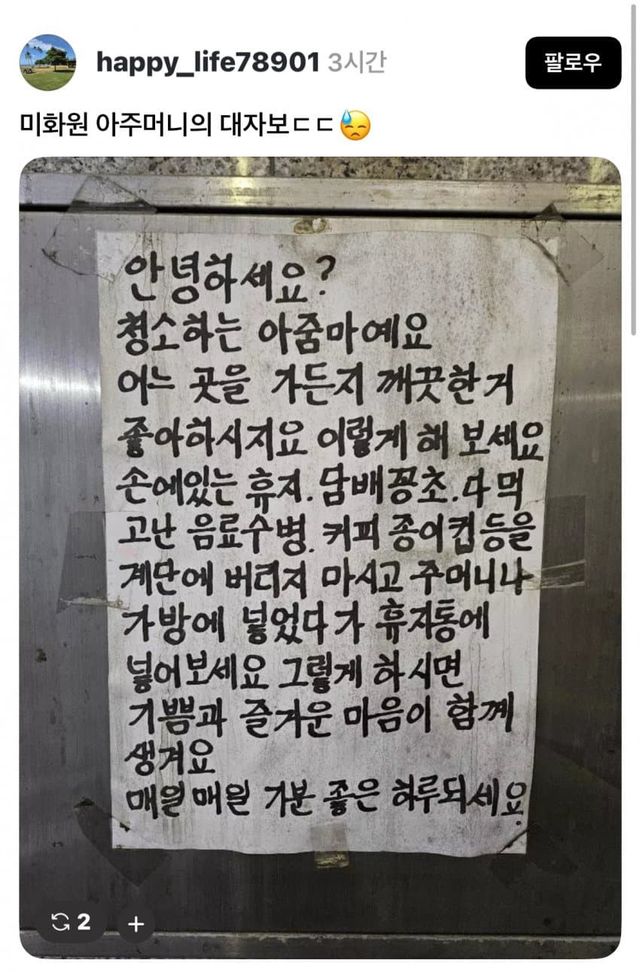 happy_life78901 3시간
팔로우
미화원 아주머니의 대자보ㄷㄷ😓
안녕하세요?
청소하는 아줌마예요
어느 곳을 가든지 깨끗한거
좋아하시지요 이렇게 해 보세요
손에있는 휴지. 담배꽁초. 다 먹
고난 음료수병. 커피 종이컵등을
계단에 버리지 마시고 주머니나
가방에 넣었다가 휴지통에
넣어보세요 그렇게 하시면
기쁨과 즐거운 마음이 함께
생겨요
매일매일 기분 좋은 하루되세요.
2